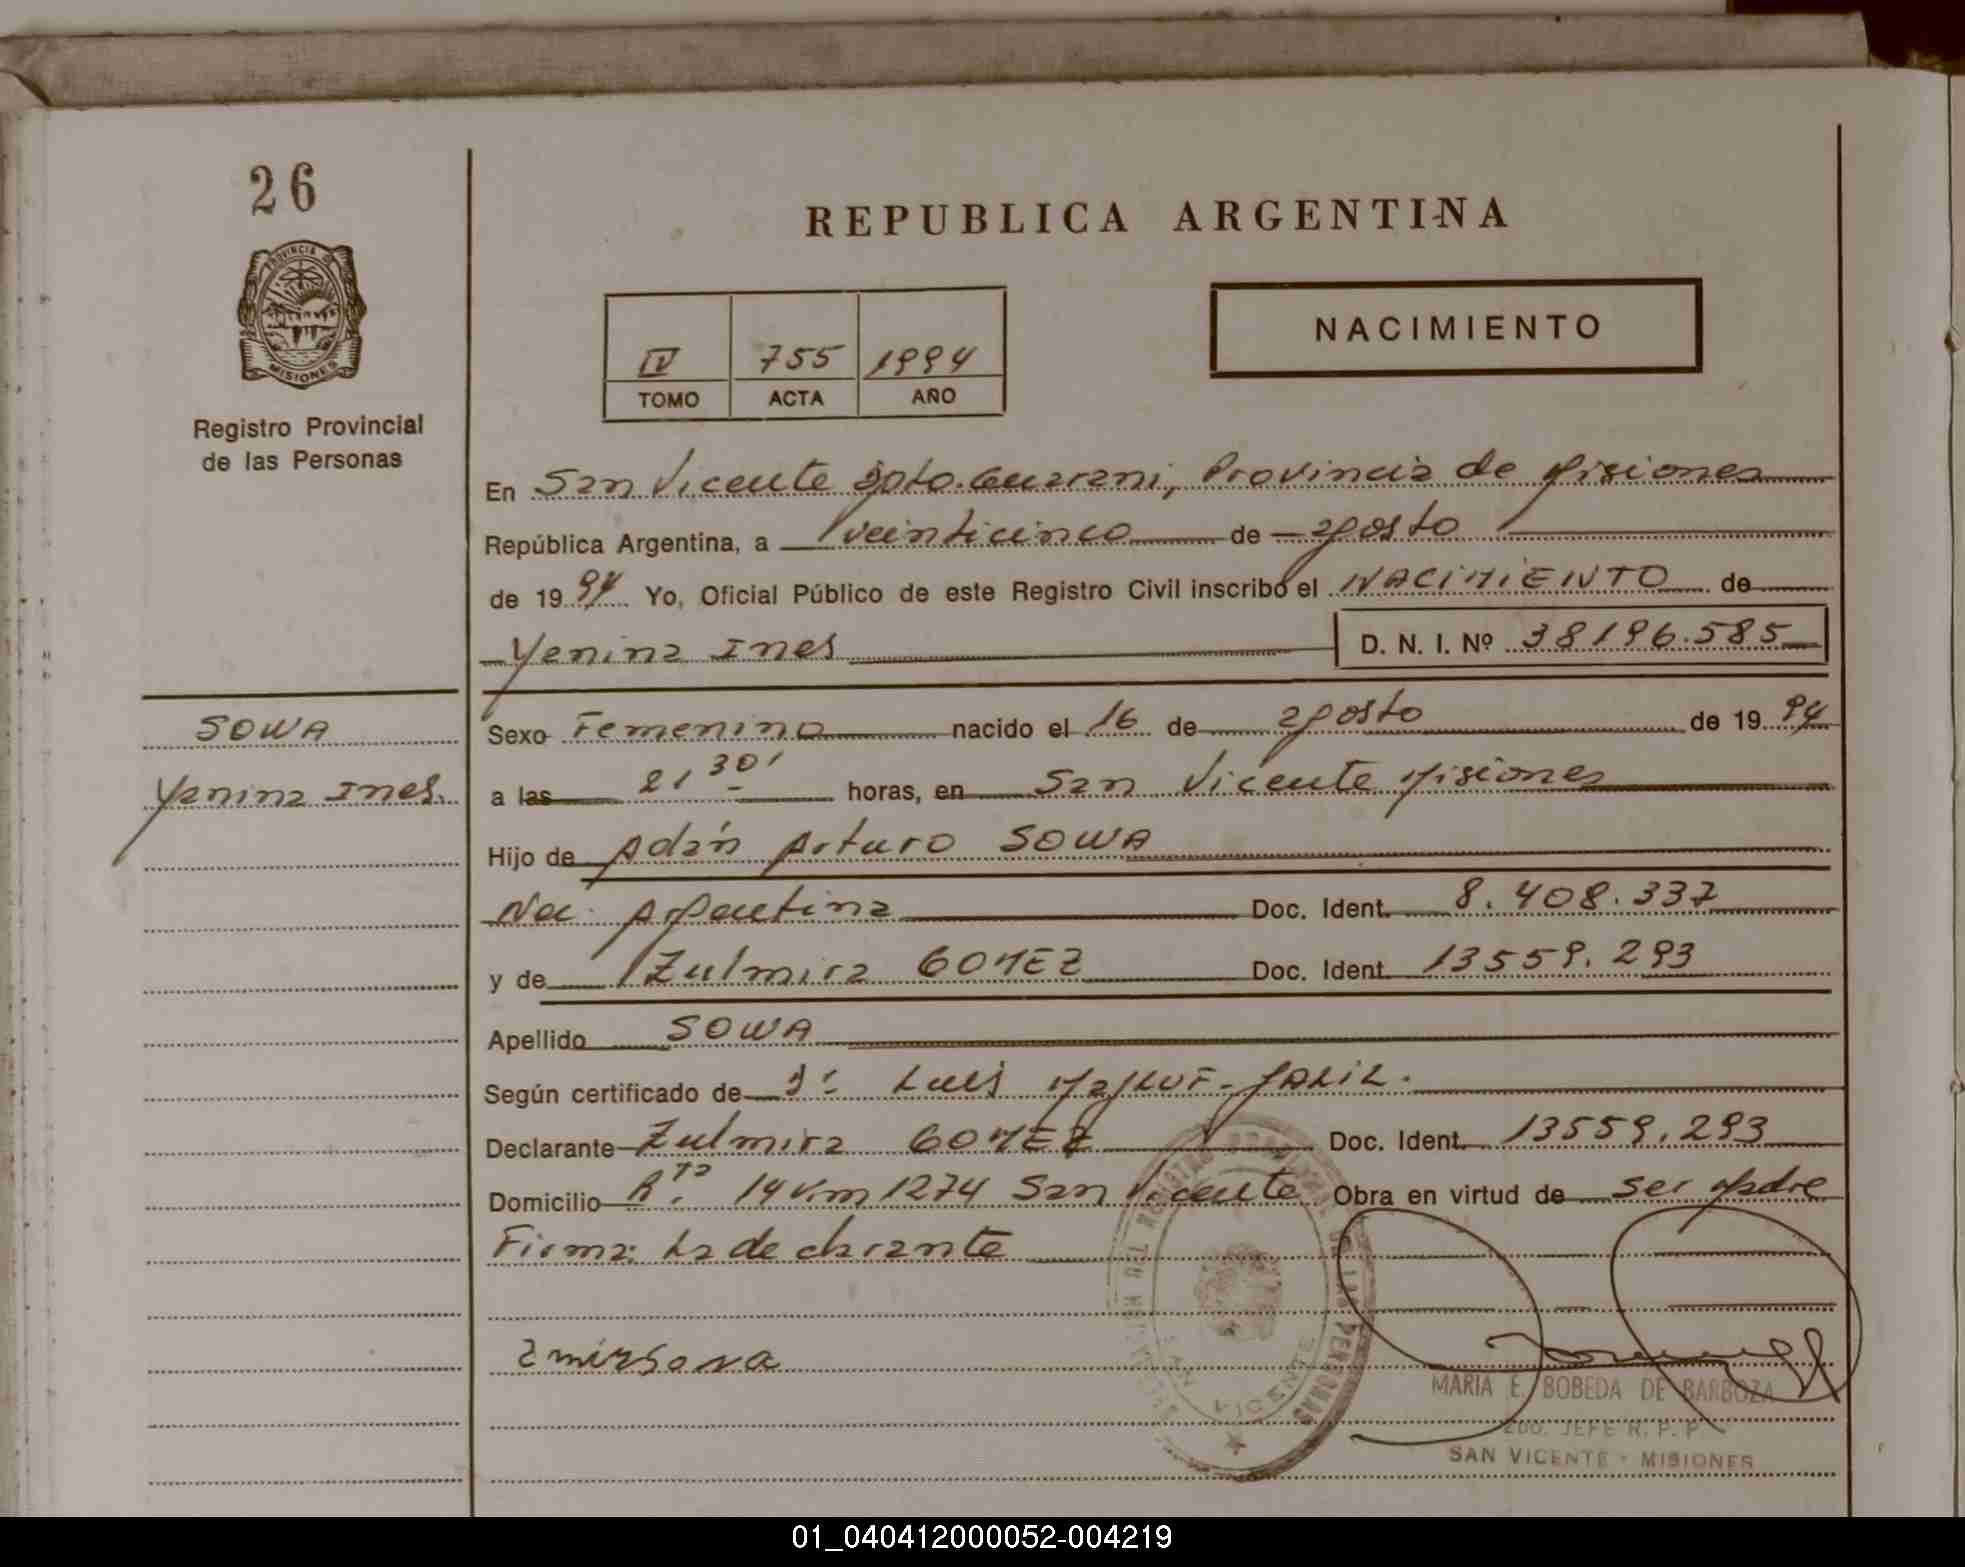 26
PROVINCIA DE
MISIONES
Registro Provincial
de las Personas
REPUBLICA ARGENTINA
NACIMIENTO
IV 755 1994
TOMO ACTA AÑO
En San Vicente Dpto. Guarani, Provincia de Misiones
República Argentina, a veinticinco de agosto
de 19 94 Yo, Oficial Público de este Registro Civil inscribo el NACIMIENTO de
Yenina Ines D. N. I. Nº 38196.585
SOWA
Yenina Ines.
Sexo Femenino nacido el 16 de agosto de 19 94
a las 21 30' horas, en San Vicente Misiones
Hijo de Adán Arturo SOWA
Nac. Argentina Doc. Ident. 8.408.337
y de Zulmira GOMEZ Doc. Ident. 13559.293
Apellido SOWA
Según certificado de Luis JALIL.
Declarante Zulmira GOMEZ Doc. Ident. 13559.293
Domicilio Rta. 14 Km 1274 San Vicente Obra en virtud de ser Madre
Firma: La declarante
SAN VICENTE
MARIA E. BOBEDA DE BARBOZA
2DO. JEFE R. P. P.
SAN VICENTE - MISIONES
01_040412000052-004219